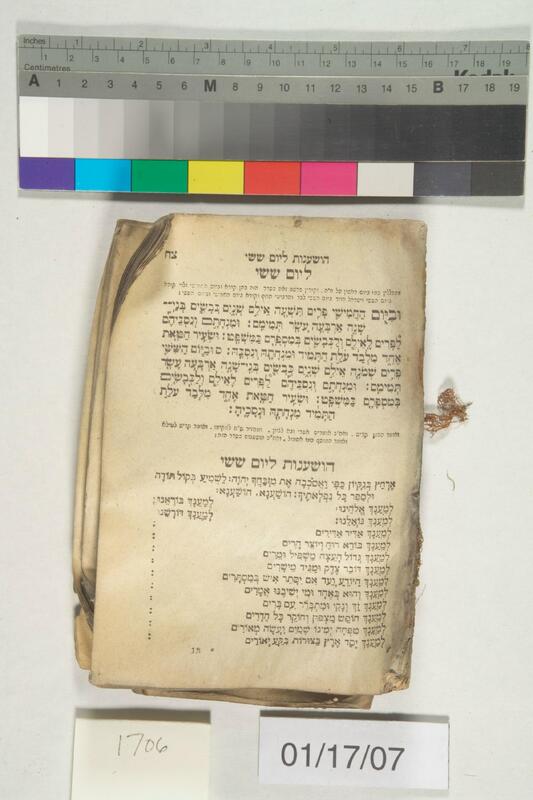 Inches 1 2 3 4 5 6 7 8
Centimetres 1 2 3 4 5 6 7 8 9 10 11 12 13 14 15 17 18 19
Kodak
A 1 2 3 4 5 6 M 8 9 10 11 12 13 14 15 B 17 18 19
הושענות ליום ששי צח
ליום ששי
וּבַיּוֹם הַחֲמִישִׁי פָּרִים תִּשְׁעָה אֵילִם שְׁנָיִם כְּבָשִׂים בְּנֵי־
שָׁנָה אַרְבָּעָה עָשָׂר תְּמִימִם: וּמִנְחָתָם וְנִסְכֵּיהֶם
לַפָּרִים לָאֵילִם וְלַכְּבָשִׂים בְּמִסְפָּרָם כַּמִּשְׁפָּט: וּשְׂעִיר חַטָּאת
אֶחָד מִלְּבַד עֹלַת הַתָּמִיד וּמִנְחָתָהּ וְנִסְכָּהּ: ס וּבַיּוֹם הַשִּׁשִּׁי
פָּרִים שְׁמֹנָה אֵילִם שְׁנָיִם כְּבָשִׂים בְּנֵי־שָׁנָה אַרְבָּעָה עָשָׂר
תְּמִימִם: וּמִנְחָתָם וְנִסְכֵּיהֶם לַפָּרִים לָאֵילִם וְלַכְּבָשִׂים
בְּמִסְפָּרָם כַּמִּשְׁפָּט: וּשְׂעִיר חַטָּאת אֶחָד מִלְּבַד עֹלַת
הַתָּמִיד מִנְחָתָהּ וּנְסָכֶיהָ:
הושענות ליום ששי
אֶרְחַץ בְּנִקָּיוֹן כַּפָּי וַאֲסֹבְבָה אֶת מִזְבַּחֲךָ יְהֹוָה: לַשְׁמִיעַ בְּקוֹל תּוֹדָה
וּלְסַפֵּר כָּל נִפְלְאֹתֶיךָ: הוֹשַׁעְנָא, הוֹשַׁעְנָא:
לְמַעֲנָךְ אֱלֹהֵינוּ: לְמַעֲנָךְ בּוֹרְאֵנוּ:
לְמַעֲנָךְ גּוֹאֲלֵנוּ: לְמַעֲנָךְ דּוֹרְשֵׁנוּ:
לְמַעֲנָךְ אַדִּיר אַדִּירִים
לְמַעֲנָךְ בּוֹרֵא רוּחַ וְיוֹצֵר הָרִים
לְמַעֲנָךְ גְּדוֹל הָעֵצָה מַשְׁפִּיל וּמֵרִים
לְמַעֲנָךְ דּוֹבֵר צֶדֶק וּמַגִּיד מֵישָׁרִים
לְמַעֲנָךְ הַיּוֹדֵעַ וָעֵד אִם יִסָּתֵר אִישׁ בְּמִסְתָּרִים
לְמַעֲנָךְ וְהוּא בְאֶחָד וּמִי יְשִׁיבֶנּוּ אֲמָרִים
לְמַעֲנָךְ זַךְ וְנָקִי וּמִתְבָּרֵר עִם בָּרִים
לְמַעֲנָךְ חוֹפֵשׂ מַצְפּוּן וְחוֹקֵר כָּל חֲדָרִים
לְמַעֲנָךְ טִפְּחָה יְמִינוֹ שָׁמַיִם וְעָשָׂה מְאוֹרִים
לְמַעֲנָךְ יָסַד אֶרֶץ בְּצוּרוֹת בִּקַּע יְאוֹרִים
1706
01/17/07